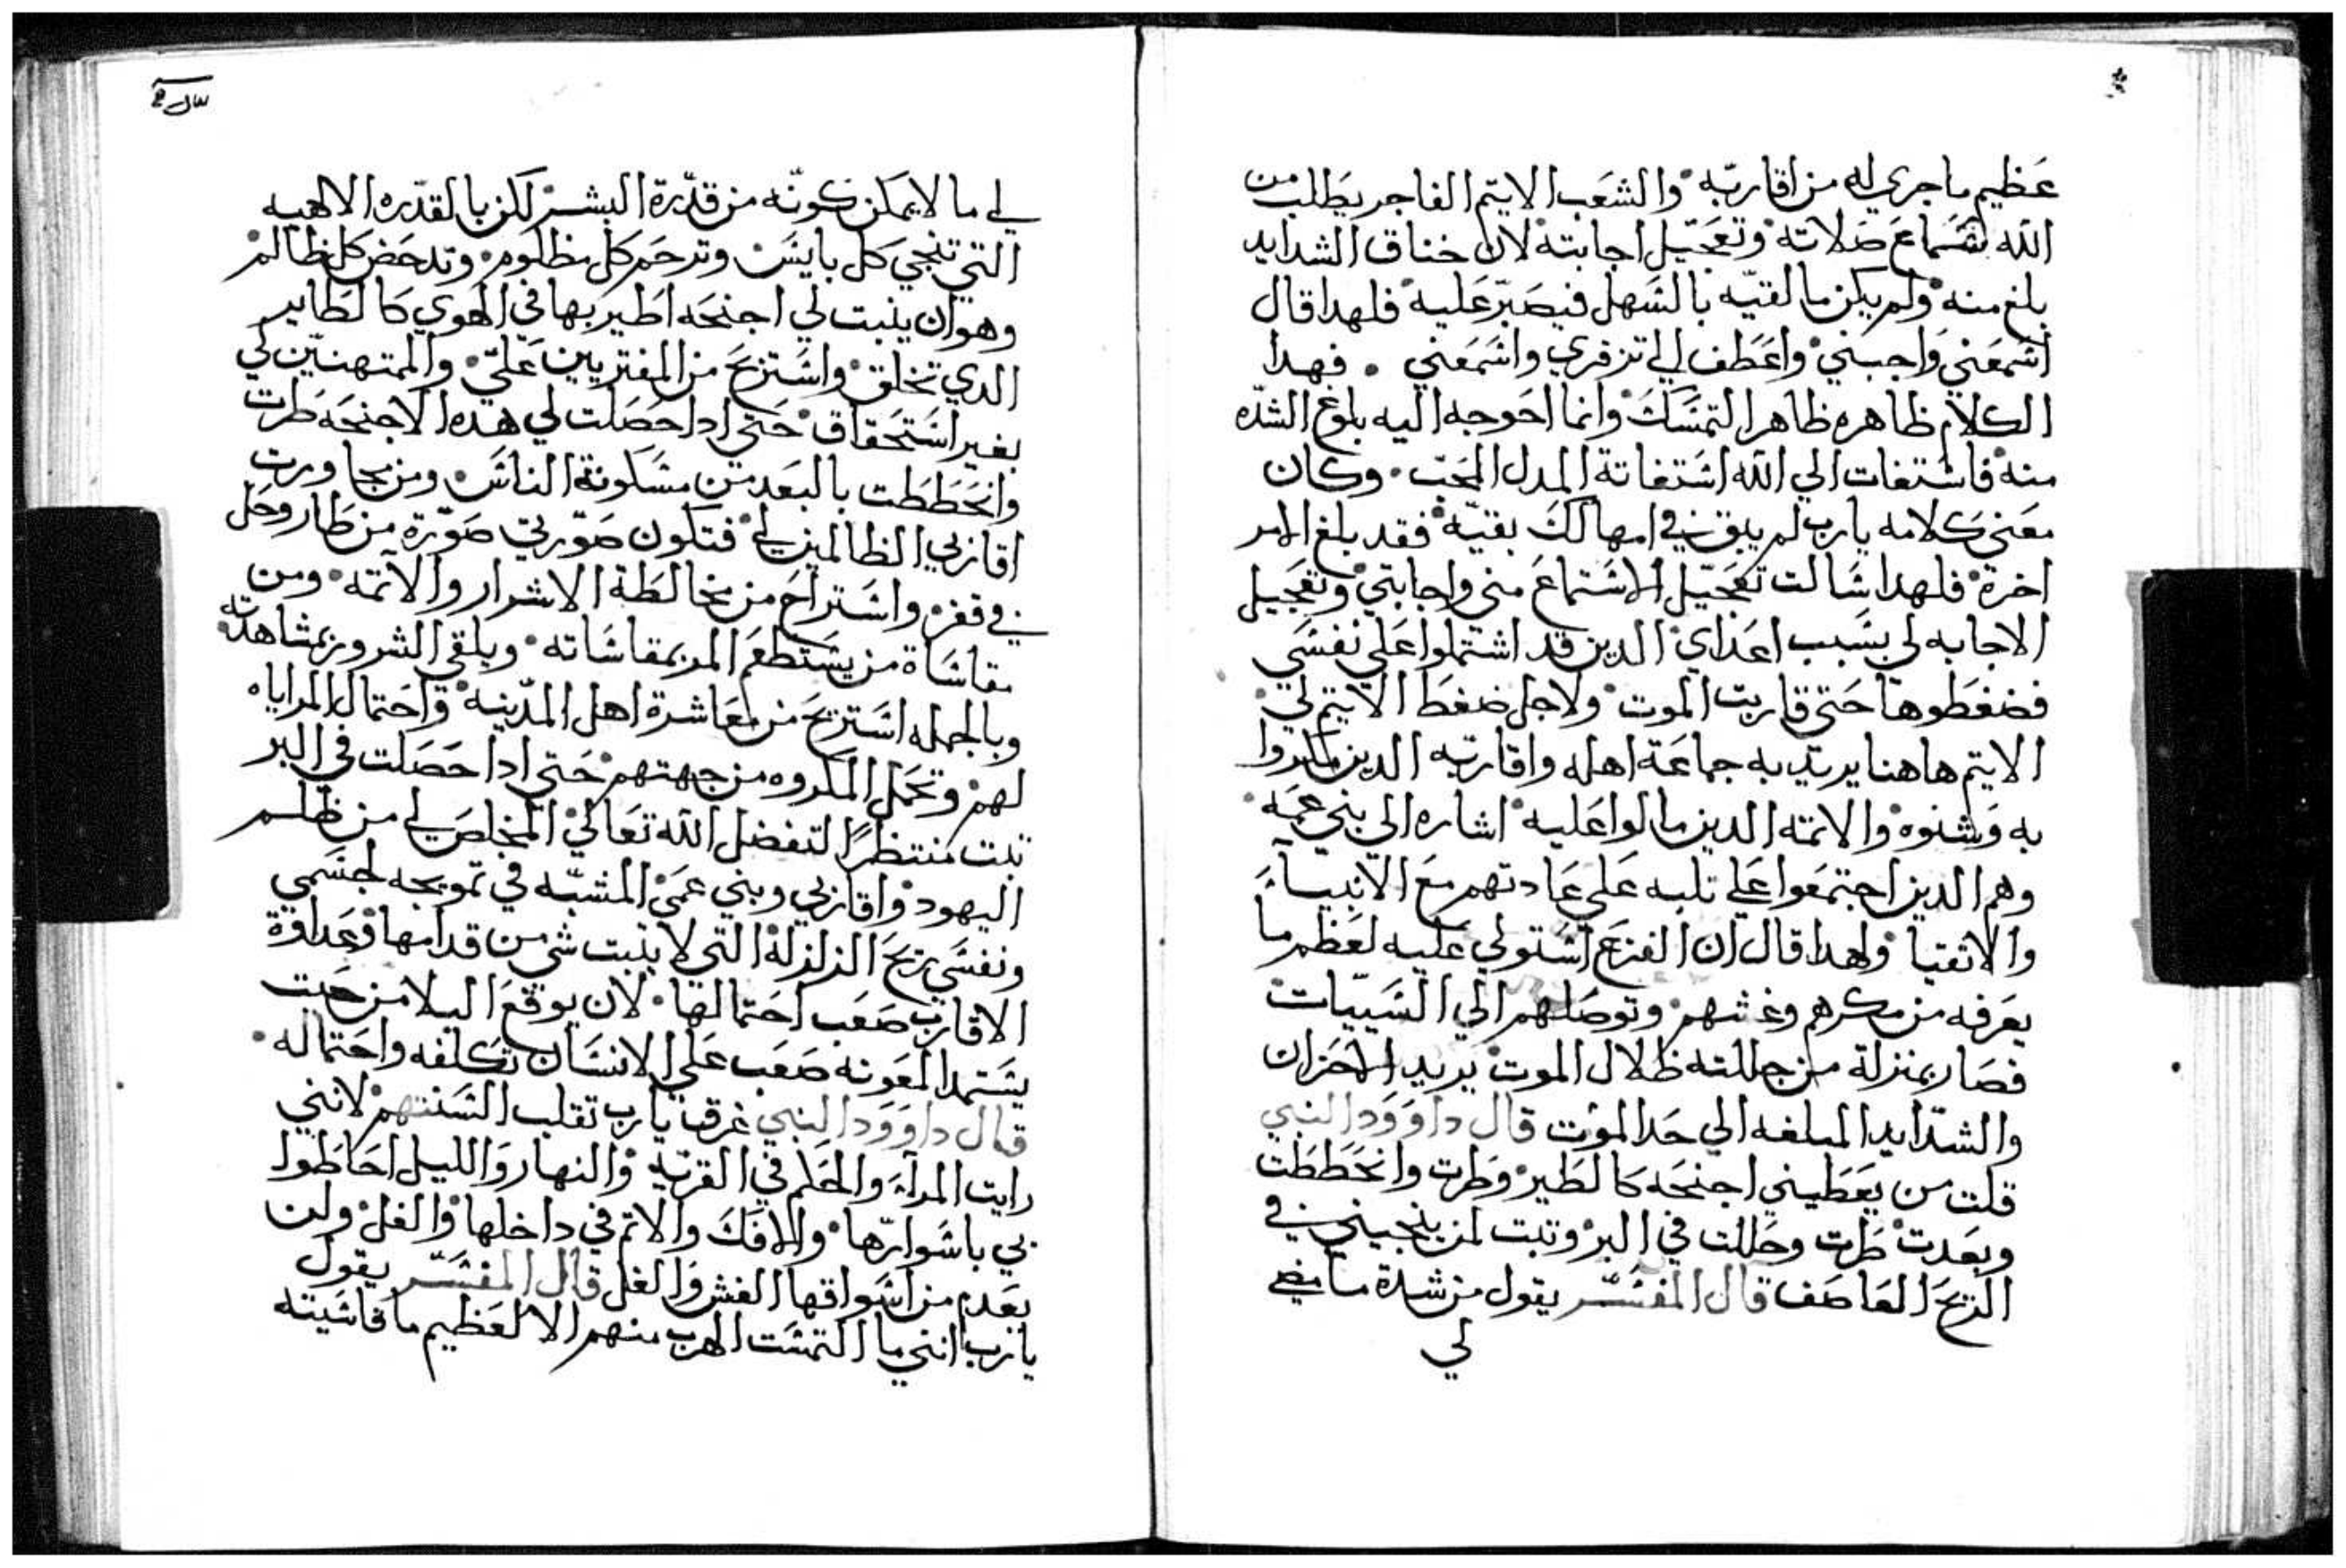 عظيم ما جري له من اقاربه والشعب الايتم الفاجر يطلب من
الله لشماع صلاته وتعجيل اجابته لان خناق الشدايد
بلغ منه ولم يكن ما لقيه بالشهل فيصبر عليه فلهدا قال
اشمعني واجبني واعطف الي تزفري واشمعني . فهدا
الكلام ظاهره ظاهر التمشك وانما احوجه اليه بلوغ الشده
منه فاشتغات الي الله اشتغاتة المدل المحب . وكان
معني كلامه يارب لم يبق في امهالك بقيه فقد بلغ الامر
اخره فلهدا شالت تعجيل الاشتماع مني واجابتي وتعجيل
الاجابه لي بشبب اعداي الدين قد اشتملوا علي نفشي
فضغطوها حتي قاربت الموت ولاجل ضغط الايتم لي
الايتم هاهنا يريد به جماعة اهله واقاربه الدين مكروا
به وشنوه والاتمه الدين مالوا عليه اشاره الي بني عمه
وهم الدين اجتمعوا علي تلبه علي عادتهم مع الانبيآء
والاتقيا ولهدا قال ان الفزع اشتولي عليه لعظم ما
يعرفه من مكرهم وغشهم وتوصلهم الي الشييات
فصار بمنزلة من جللته ظلال الموت يريد الاحزان
والشدايد المبلغه الي حد الموت قال داوود النبي
قلت من يعطيني اجنحه كالطير وطرت وانحططت
وبعدت طرت وحللت في البر وتبت لمن ينجيني في
الريح العاصف قال المفشر يقول من شدة ما بقي
لي
لي ما لا يمكن كونه من قدرة البشر لكن بالقدره الالهيه
التي تنجي كل بايش وترحم كل مظلوم وتدحض كل ظالم
وهو ان ينبت لي اجنحه اطير بها في الهوي كالطاير
الدي تخلق واشتريح من المفتريين علي والممتهنين لي
بغير اشتحقاق حتي ادا حصلت لي هده الاجنحه طرت
وانحططت بالبعد من مشكونة الناش ومن مجاورت
اقاربي الظالمين لي فتكون صورتي صورة من طار وحل
في قفر واشتراح من مخالطة الاشرار والاتمه ومن
مقاشاة من يشتطعم المر بمقاشاته ويلقي الشرور بمشاهدته
وبالجمله اشتريح من معاشرة اهل المدينه واحتمال المراياه
لهم وتحمل المكروه من جهتهم حتي ادا حصلت في البر
تبت منتظرًا لتفضل الله تعالي المخلص لي من ظلم
اليهود واقاربي وبني عمي المشبه في تمويجه لجشمي
ونفشي بريح الزلزلة التي لا يتبت شي من قدامها وعداوة
الاقارب صعب احتمالها لان يوقع البلا من حيت
يشتمد المعونه صعب علي الانشان تكلفه واحتماله
قال داوود النبي غرق يارب تقلب الشنتهم لانني
رايت المرآء والظلم في القريه والنهار والليل احاطوا
بي باشوارها والافك والاتم في داخلها والغل ولن
يعدم من اشواقها الغش والغل قال المفشر يقول
يارب انني ما التمشت الهرب منهم الا لعظيم ما قاشيته